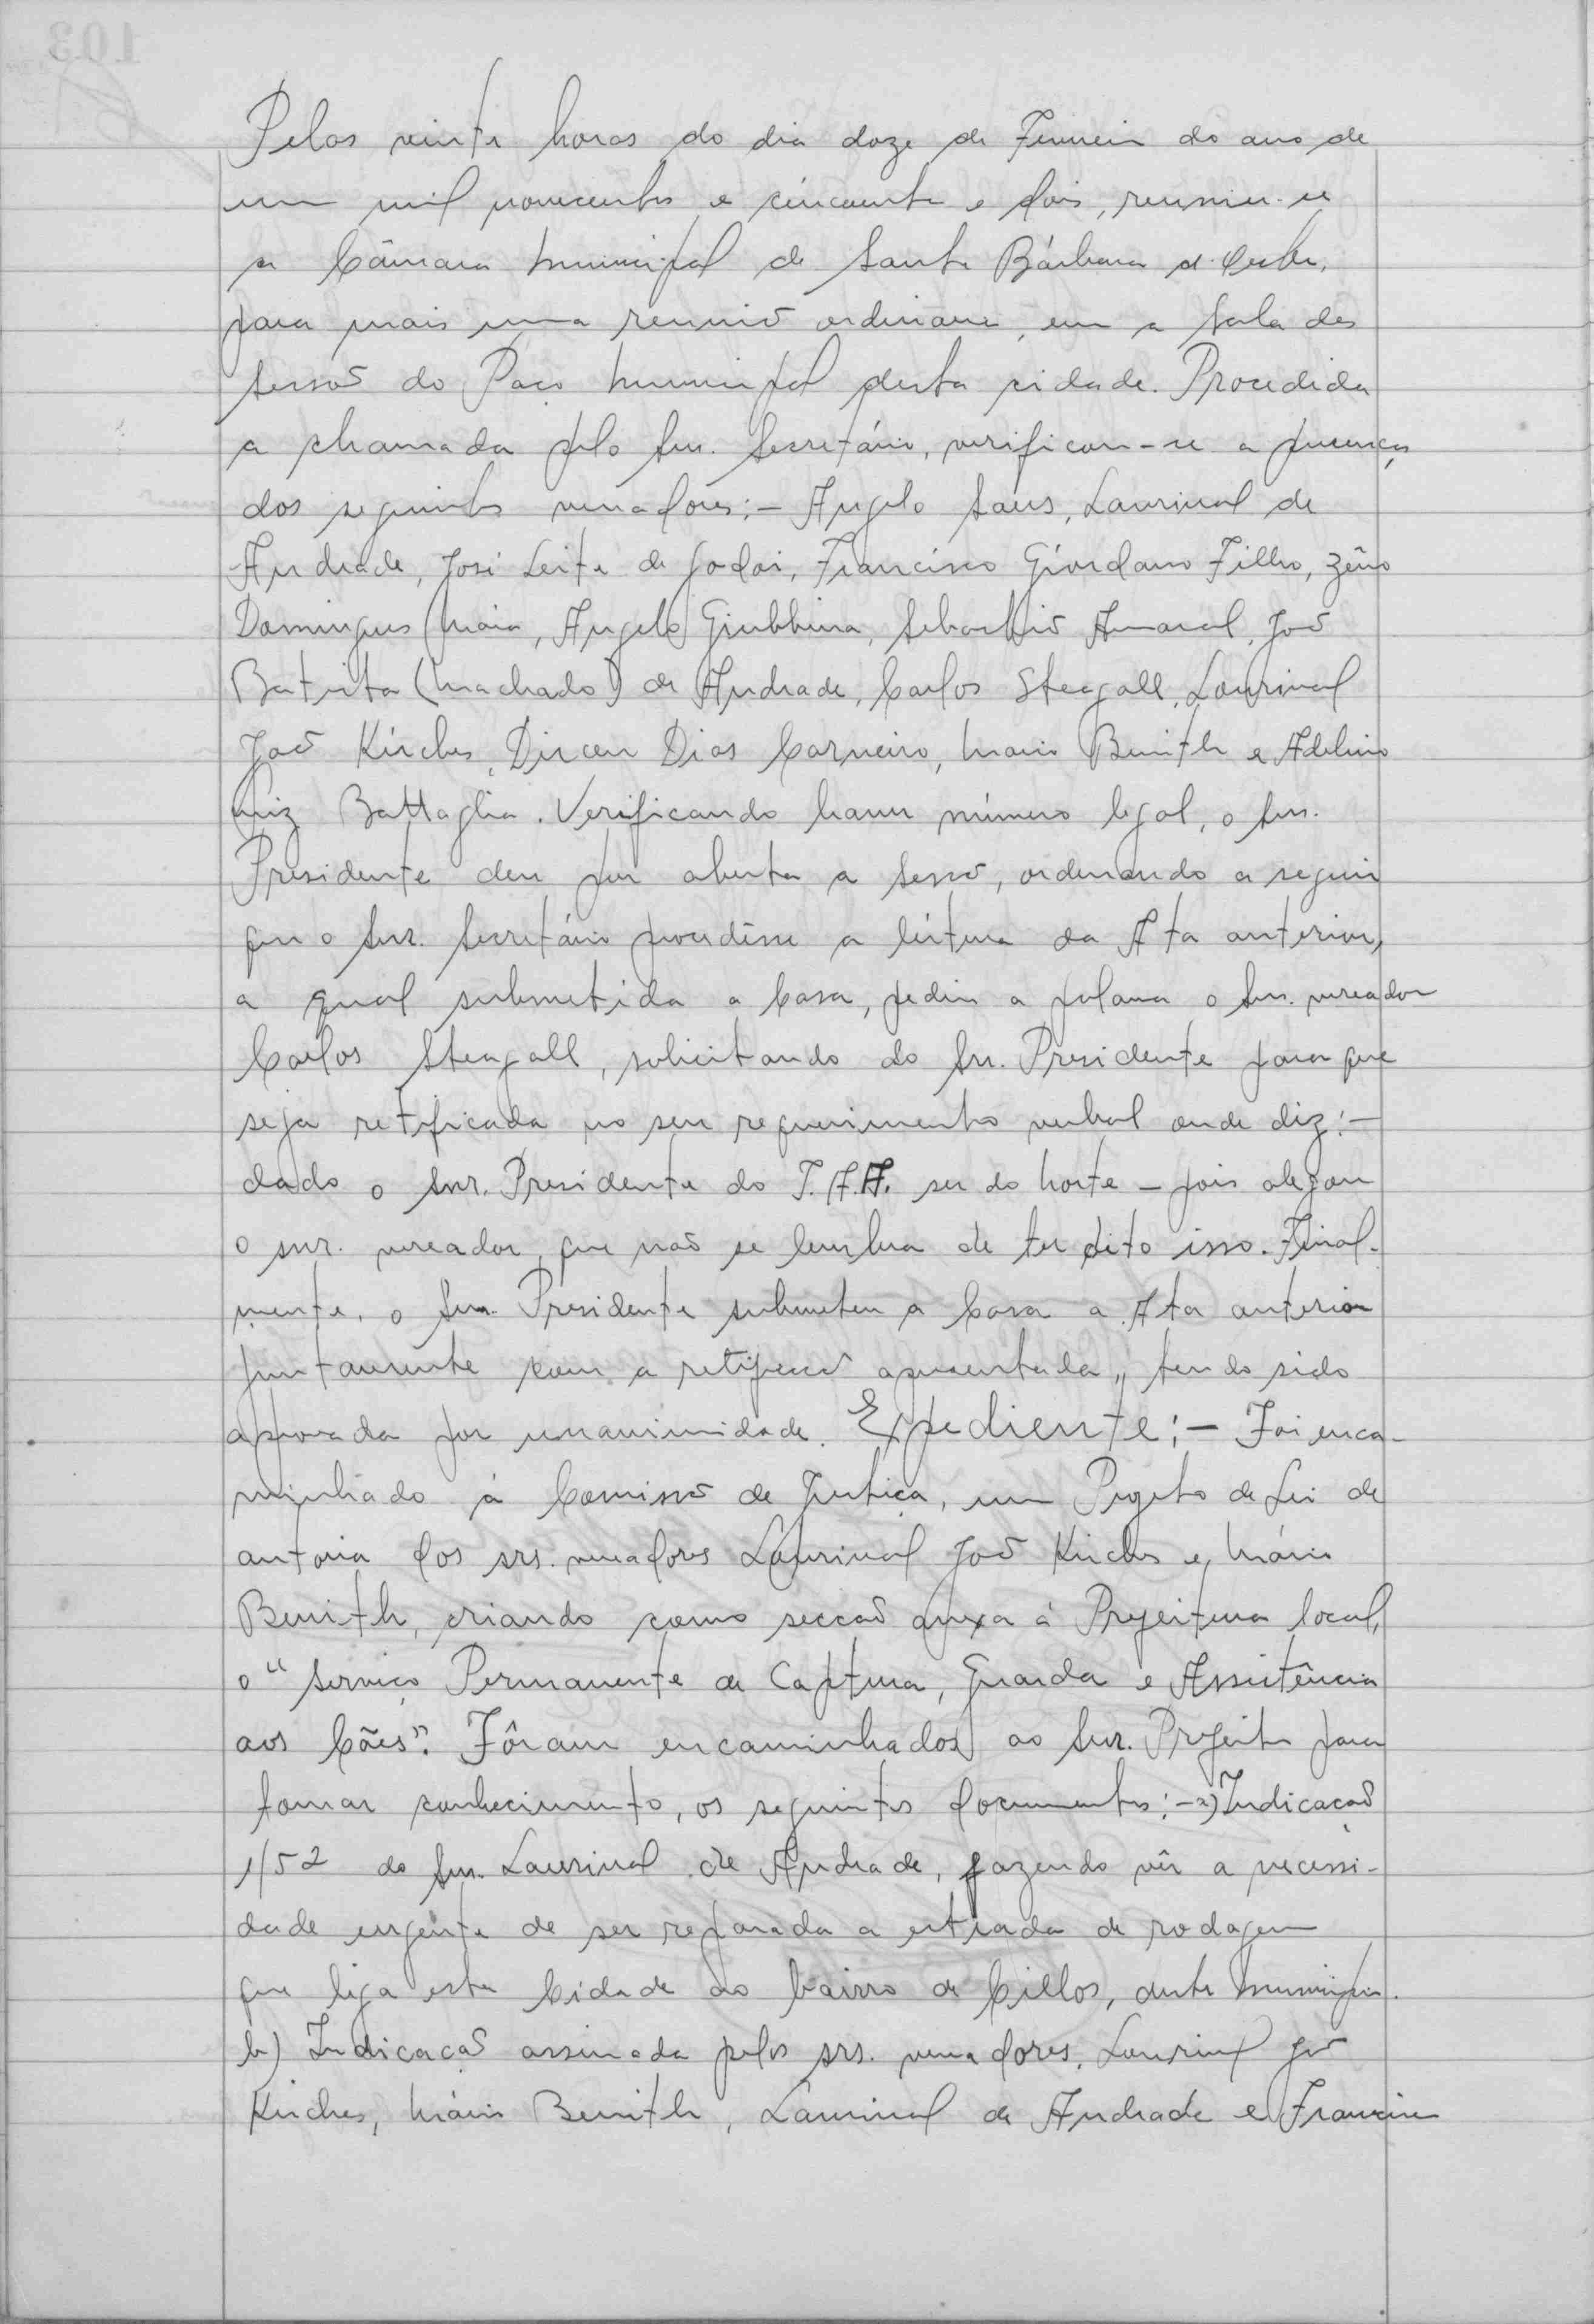 Pelas vinte horas do dia doze de Fevereiro do ano de
um mil novecentos e cincoenta e dois, reuniu-se
a Câmara Municipal de Santa Bárbara d'Oeste,
para mais uma reunião ordinaria, em a Sala das
Sessoẽs do Paço Municipal desta cidade. Procedida
a chamada pelo Snr. Secretário, verificou-se a presença
dos seguintes vereadores:- Angelo Sans, Laurival de
Andrade, José Leite de Godoi, Francisco Giordano Filho, Zêno
Domingues Maia, Angelo Giubbina, Sebastião Amaral, João
Batista (Machado) de Andrade, Carlos Steagall, Lourival
João Kirches, Dirceu Dias Carneiro, Mario Benith e Adelino
Luiz Battaglia. Verificando haver número legal, o Snr.
Presidente deu por aberta a sessão, ordenando a seguir
que o Snr. Secretário procedêsse a leitura da Ata anterior,
a qual submetida a Casa, pediu a palavra o Snr. vereador
Carlos Steagall, solicitando do Snr. Presidente para que
seja retificada no seu requerimento verbal onde diz:-
dado o Snr. Presidente do I.A.A. ser do Norte - pois alegou
o snr. vereador, que não se lembra de ter dito isso. Final-
mente, o Snr. Presidente submeteu a Casa a Ata anterior
juntamente com a retificação apresentada, tendo sido
aprovada por unanimidade. Expediente:- Foi enca-
minhado à Comissão de Justiça, um Projeto de Lei de
autoria dos srs. vereadores Laurival João Kirches e, Mário
Benith, criando como secção anexa à Prefeitura local,
o "Serviço Permanente de Captura, Guarda e Assistência
aos Cães". Fôram encaminhados ao Snr. Prefeito para
tomar conhecimento, os seguintes documentos:- a) Indicação
1/52 do Snr. Laurival de Andrade, fazendo vêr a necessi-
dade urgente de ser reparada a estrada de rodagem
que liga esta Cidade ao bairro de Cillos, deste Municipio.
b) Indicação assinada pelos srs. vereadores, Laurival João
Kirches, Mário Benith, Laurival de Andrade e Francisco